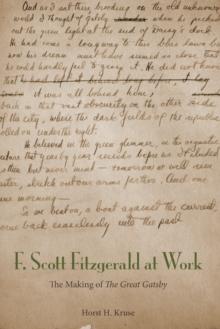 And as I sat there brooding on the old unknown
world I thought of Gatsby when he picked
out the green light at the end of Daisy's dock.
He had come a long way to this blue lawn
and his dream must have seemed so close that
he could hardly fail to grasp it. He did not know that
it was all behind him,
back in that vast obscurity on the other side
of the city, where the dark fields of the republic
rolled on under the night.
He believed in the green glimmer, in the orgastic
future that year by year recedes before us. It eluded
then but never mind — tomorrow we will run
faster, stretch out our arms farther. And one
morning —
So we beat on, a boat against the current,
borne back ceaselessly into the past
F. Scott Fitzgerald at Work
The Making of The Great Gatsby
Horst H. Kruse